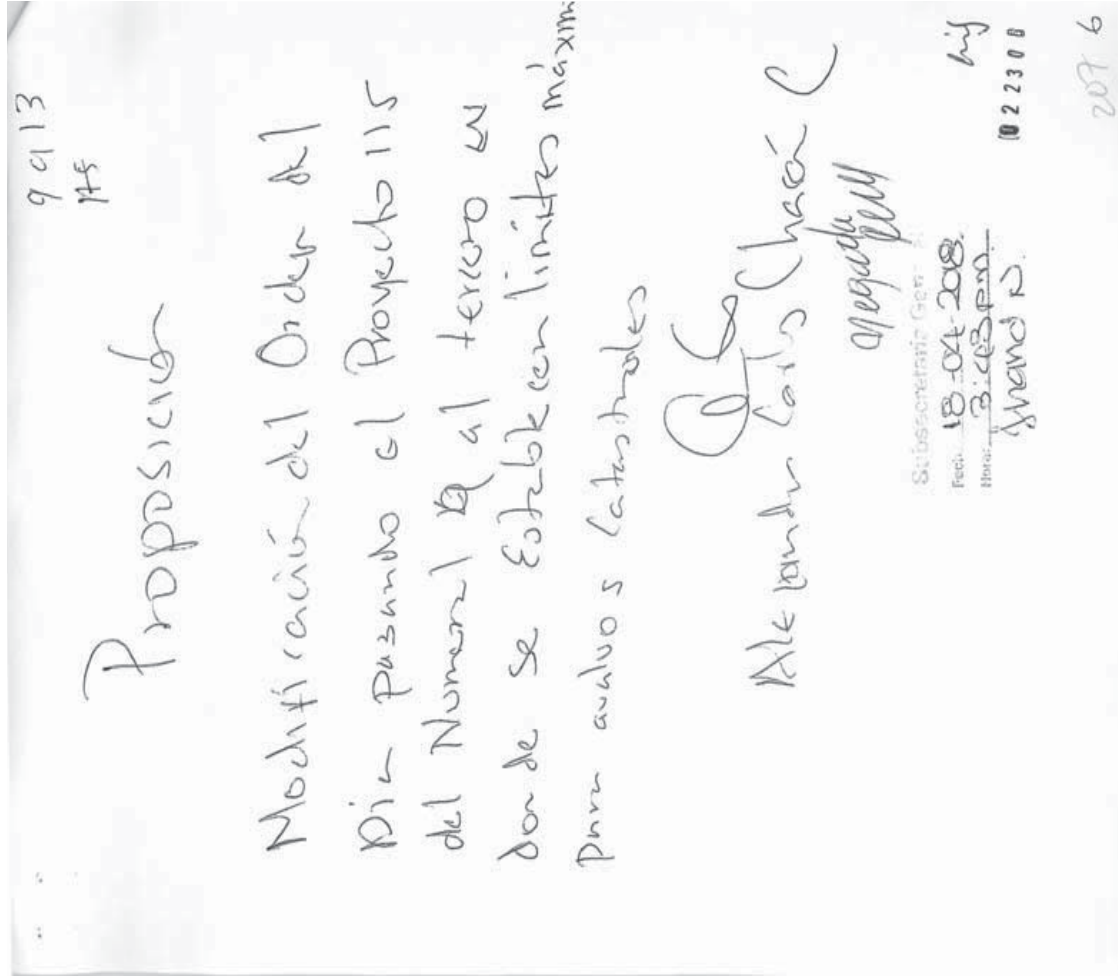 9 9 13
Proposición
Modificación del Orden del
Día pasando el Proyecto 115
del Numeral al tercero
donde se Establecen limites máxim
para avaluos Catastrales
Alejandro Carlos Chacón C
negada
Subsecretaría Gen
Fech 18-04-2018.
Hora: 3:03 pm.
Jhand N.
022306
207 6